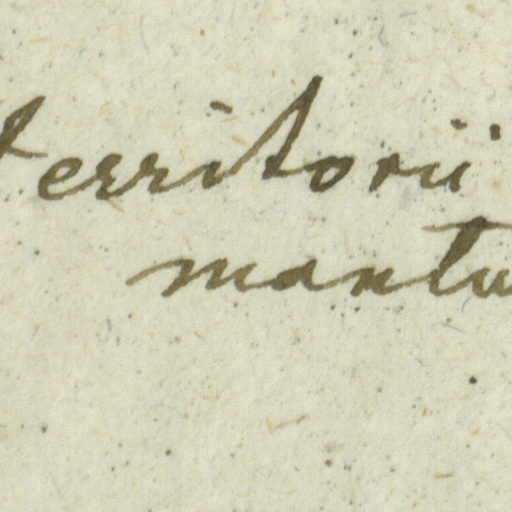 territorii
mantu